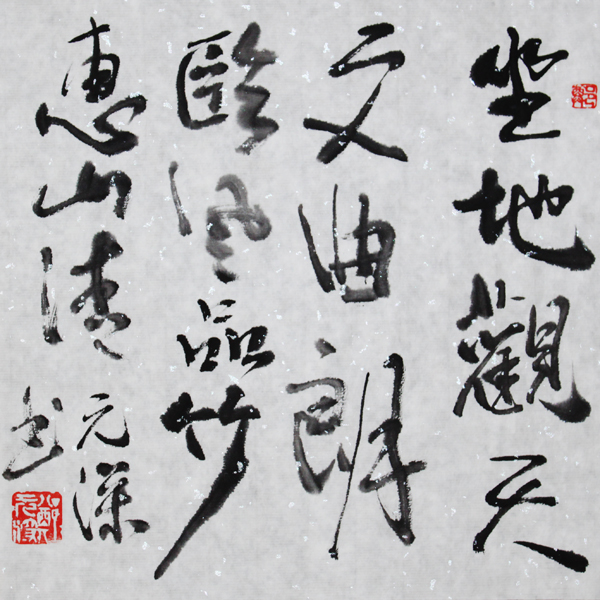 坐地觀天
文曲朗
臨風品竹
惠山清
元深
书